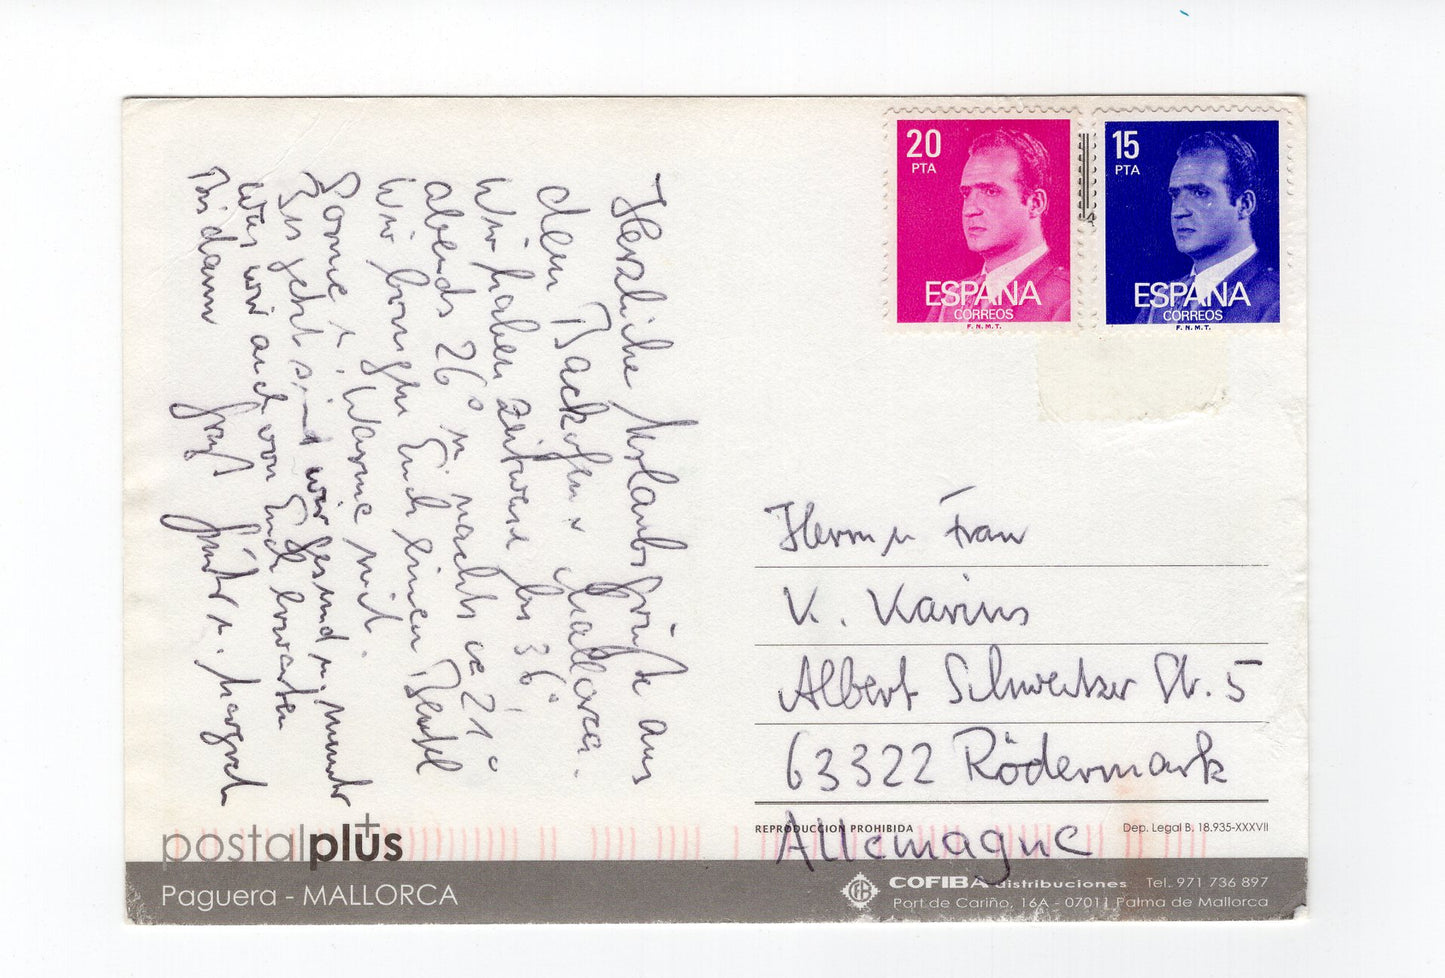 Herzliche Urlaubsgrüße aus
dem Backofen Mallorca.
Wir haben zeitweise bis 36°
abends 26° u. nachts ca 21°
Wir bringen Euch einen Beutel
Sonne u. Wärme mit.
Bis jetzt sind wir gesund u. munter
was wir auch von Euch erwarten
Bis dann Gruß Günter u. Margret
20
PTA
ESPAÑA
CORREOS
F. N. M. T.
15
PTA
ESPAÑA
CORREOS
F. N. M. T.
Herrn u Frau
K. Karius
Albert Schweitzer Str. 5
63322 Rödermark
Allemagne
REPRODUCCION PROHIBIDA
Dep. Legal B. 18.935-XXXVII
postalplus
Paguera - MALLORCA
COFIBA distribuciones Tel. 971 736 897
Port de Cariño, 16A - 07011 Palma de Mallorca